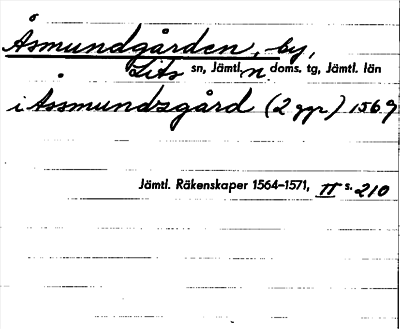 Åsmundgården, by,
Lits sn, Jämtl. n. doms. tg, Jämtl. län
i Åssmundzgård (2 ggr) 1569
Jämtl. Räkenskaper 1564–1571, II s. 210